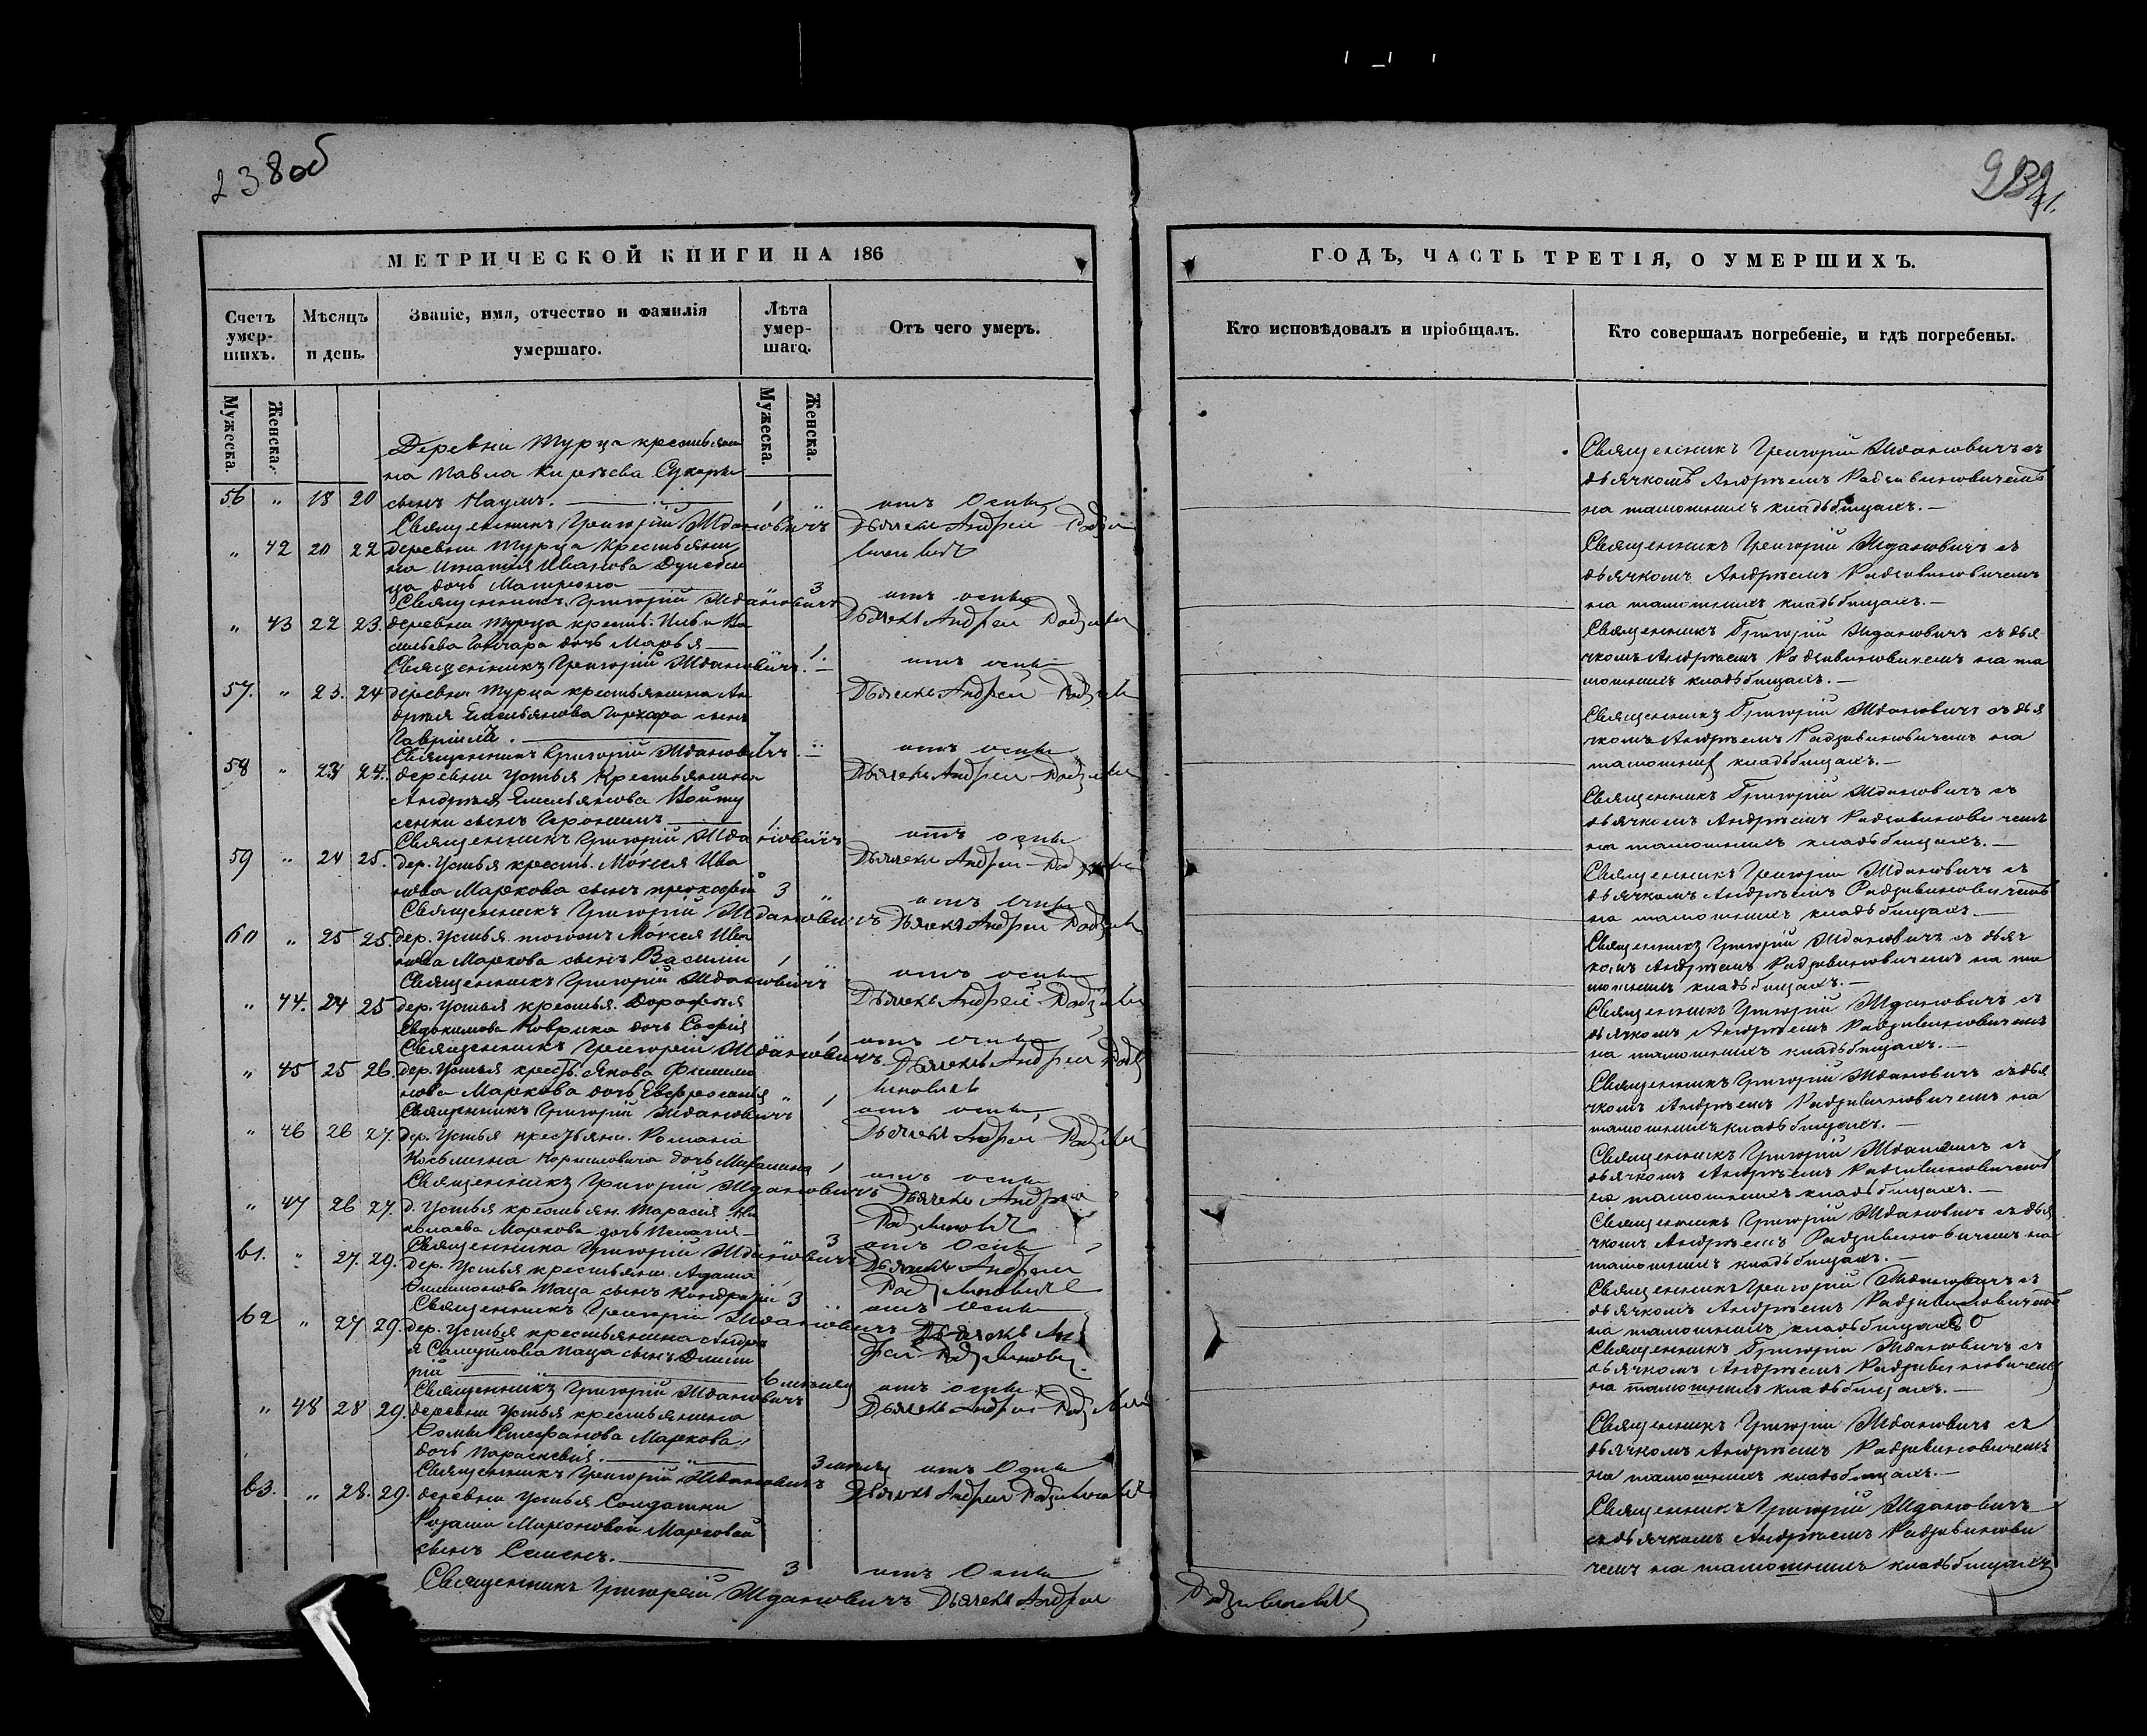 238 об
239
МЕТРИЧЕСКОЙ КНИГИ НА 186
Счетъ умер-шихъ.
Мѣсяцъ и день.
Званіе, имя, отчество и фамилія умершаго.
Лѣта умер-шаго.
Отъ чего умеръ.
Мужеска.
Женска.
Мужеска.
Женска.
Деревни Турца крестьяни
на Павла
56 " 18 20 сынъ Наумъ. 1 " отъ Оспы
Священникъ Григорій Ждановичъ Дьячекъ Андрей
" 42 20 22 деревни Турца крестьяни
на Игнатія Иванова
ца дочь Матрона " 3 отъ оспы
Священникъ Григорій Ждановичъ Дьячекъ Андрей
" 43 22 23. деревни Турца крестья. Ильи Ва
сильева Гончара дочь Марья 1. отъ оспы
Священникъ Григорій Ждановичъ. Дьячекъ Андрей
57. " 23. 24 деревни Турца крестьянина Ан
дрея Емельянова сынъ
Гавріилъ. 7 " отъ оспы
Священникъ Григорій Ждановичъ Дьячекъ Андрей
58 " 23 24. деревни Устья Крестьянина
Андрея Емельянова Войту
сенки сынъ Иеронимъ 1 отъ оспы
Священникъ Григорій Ждановичъ Дьячекъ Андрей
59 " 24 25. дер. Устья крестья. Моисея Ива
нова Маркова сынъ Прокофій 3 " отъ оспы
Священникъ Григорій Ждановичъ Дьячекъ Андрей
60 " 25 25. дер. Устья тогожъ Моисея Ива
нова Маркова сынъ Василій 1 " отъ оспы
Священникъ Григорій Ждановичъ Дьячекъ Андрей
" 44. 24 25 дер. Устья крестья. Дорофея
Евдокимова Коврика дочь Софія 1 отъ оспы
Священникъ Григорій Ждановичъ Дьячекъ Андрей
" 45 25 26. дер. Устья крестъ. Якова Филимо
нова Маркова дочь Евфросинія " 1 отъ оспы
Священникъ Григорій Ждановичъ Дьячекъ Андрей
" 46 26 27. дер. Устья крестьяни. Романа
Козьмина дочь 1 отъ оспы
Священникъ Григорій Ждановичъ Дьячекъ Андрей
" 47 26 27. д. Устья крестьян. Тарасія Ни
колаева Маркова дочь Пелагія 3 отъ Оспы
Священникъ Григорій Ждановичъ Дьячекъ Андрей
61. " 27. 29. дер. Устья крестьян. Адама
Паца сынъ Кондратій 3 отъ Оспы
Священникъ Григорій Ждановичъ Дьячекъ Ан
дрей
62 " 27 29. дер. Устья крестьянина Андре
я Самуилова Паца сынъ Дмит
рій 6 отъ оспы
Священникъ Григорій Ждановичъ Дьячекъ Андрей
" 48 28 29. деревни Устья крестьянина
Фомы Стефанова Маркова
дочь Параскевія. 3 отъ Оспы
Священникъ Григорій Ждановичъ Дьячекъ Андрей Радзивиновичъ
63. " 28. 29. деревни Устья Солдатки
Мироновой Марковой
сынъ Семенъ. 3 отъ Оспы
Священникъ Григорій Ждановичъ Дьячекъ Андрей
Радзивиновичъ
ГОДЪ, ЧАСТЬ ТРЕТІЯ, О УМЕРШИХЪ.
Кто исповѣдовалъ и пріобщалъ.
Кто совершалъ погребеніе, и гдѣ погребены.
Священникъ Григорій Ждановичъ съ
дьячкомъ Андреемъ Радзивиновичемъ
на тамошнихъ кладбищахъ.
Священникъ Григорій Ждановичъ съ
дьячкомъ Андреемъ Радзивиновичемъ
на тамошнихъ кладбищахъ.
Священникъ Григорій Ждановичъ съ дья
чкомъ Андреемъ Радзивиновичемъ на та
мошнихъ кладбищахъ.
Священникъ Григорій Ждановичъ съ дья
чкомъ Андреемъ Радзивиновичемъ на
тамошних кладбищахъ.
Священникъ Григорій Ждановичъ съ
дьячкомъ Андреемъ Радзивиновичемъ
на тамошнихъ кладбищахъ.
Священникъ Григорій Ждановичъ съ
дьячкомъ Андреемъ Радзивиновичемъ
на тамошнихъ кладбищахъ.
Священникъ Григорій Ждановичъ съ дьяч
комъ Андреемъ Радзивиновичемъ на та
мошнихъ кладбищахъ.
Священникъ Григорій Ждановичъ съ
дьячкомъ Андреемъ Радзивиновичемъ
на тамошнихъ кладбищахъ.
Священникъ Григорій Ждановичъ съ дья
чкомъ Андреемъ Радзивиновичемъ на
тамошнихъ кладбищахъ.
Священникъ Григорій Ждановичъ съ
дьячкомъ Андреемъ Радзивиновичемъ
на тамошнихъ кладбищахъ.
Священникъ Григорій Ждановичъ съ дья
чкомъ Андреемъ Радзивиновичемъ на
тамошнихъ кладбищахъ.
Священникъ Григорій Ждановичъ съ
дьячкомъ Андреемъ Радзивиновичемъ
на тамошнихъ кладбищахъ
Священникъ Григорій Ждановичъ съ
дьячкомъ Андреемъ Радзивиновичемъ
на тамошнихъ кладбищахъ.
Священникъ Григорій Ждановичъ съ
дьячкомъ Андреемъ Радзивиновичемъ
на тамошнихъ кладбищахъ.
Священникъ Григорій Ждановичъ
съ дьячкомъ Андреемъ Радзивинови
чемъ на тамошнихъ кладбищахъ